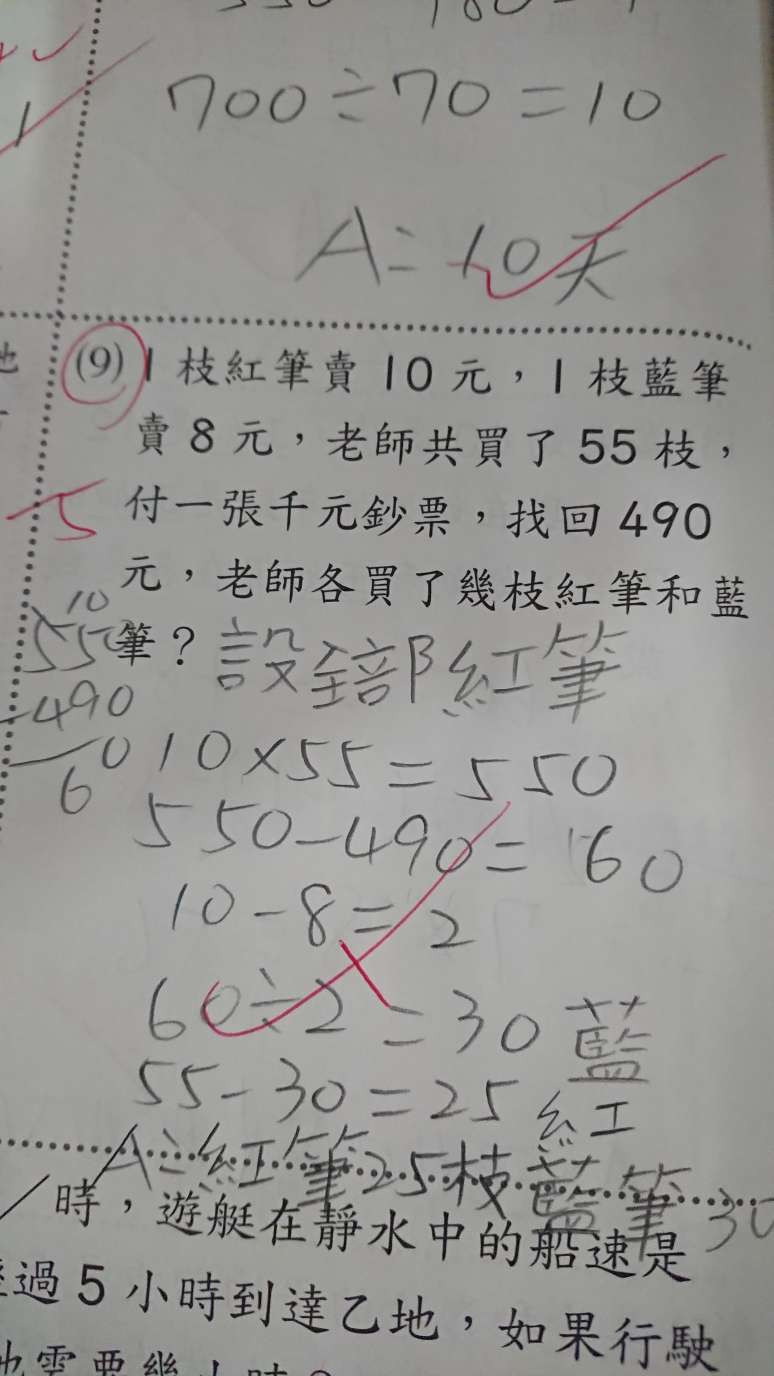 700÷70=10
A=10天
(9) 1 枝紅筆賣 10 元，1 枝藍筆
賣 8 元，老師共買了 55 枝，
付一張千元鈔票，找回 490
元，老師各買了幾枝紅筆和藍
筆？設全部紅筆
10
550
-490
60
10×55=550
550-490=60
10-8=2
60÷2=30 藍
55-30=25 紅
A=紅筆25枝藍筆30
時，遊艇在靜水中的船速是
過 5 小時到達乙地，如果行駛